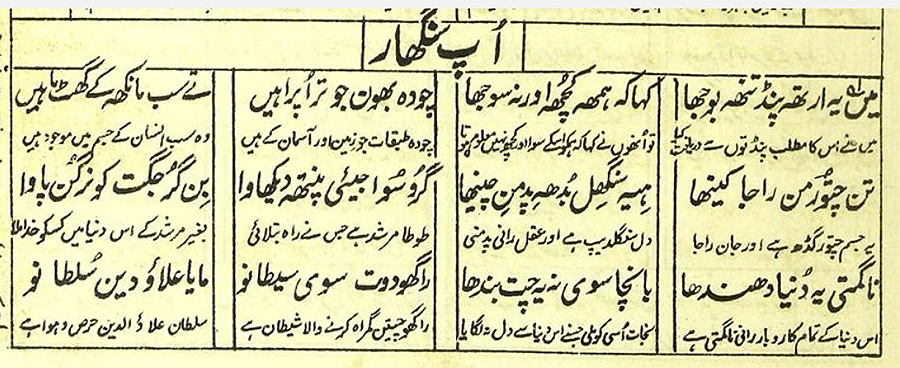 اُپ سنگھار
میں یہ ارتھ پنڈتنھ بوجھا کہا کہ ہمھ کچھُ اور نہ سوجھا چودہ بھون جو تر اُپراہیں تے سب مانکھ کے گھٹ ماہیں
میں نے اس کا مطلب پنڈتوں سے دریافت کیا تو انھوں نے کہا کہ ہمکو اسکے سوا اور کچھ نہیں معلوم ہوتا چودہ طبقات جو زمین اور آسمان کے ہیں وہ سب انسان کے جسم میں موجود ہیں
تن چتوُر من راجا کینھا ہیہ سنگھل بُدھ پدمنِ چینھا گرو سُوا جیئی پنتھ دیکھاوا بِن گرُ جگت کو نرگُن پاوا
یہ جسم چتور گڈھ ہے اور جان راجا دل سنگلدیپ ہے اور عقل رانی پدمنی طوطا مرشد ہے جس نے راہ بتلائی بغیر مرشد کے اس دنیا میں کسکو خدا ملا
ناگمتی یہ دُنیا دھندھا بانچا سوی نہ یہ چت بندھا راگھو دوت سوی سیطانو مایا علاؤ دین سُلطانو
اس دنیا کے تمام کاروبار رانی ناگمتی ہے نجات اُسی کو ملی جسنے اس دنیا سے دل نہ لگایا راگھو چیتن گمراہ کرنے والا شیطان ہے سلطان علاؤ الدین حرص و ہوا ہے